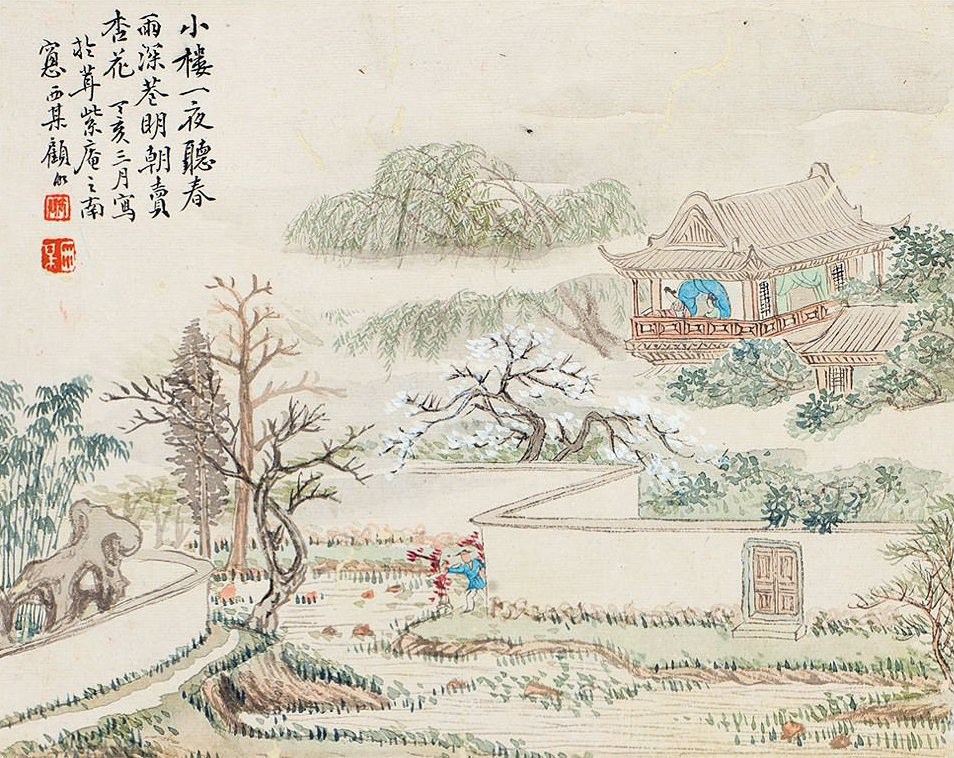 小樓一夜聽春
雨深巷明朝賣
杏花 丁亥三月寫
於茸紫庵之南
窻西某顧
西某